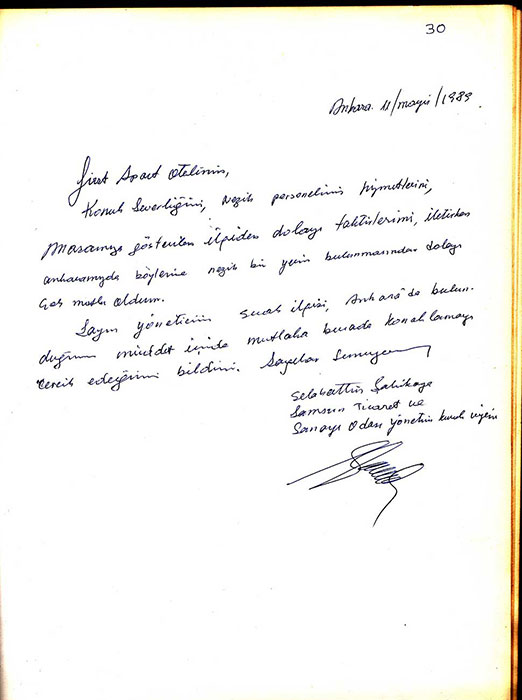 30
Ankara 11/mayıs/1989
First Apart otelinin,
Konuk Severliğini, nezih personelinin hizmetlerini,
Masamıza gösterilen ilgiden dolayı taktirlerimi, iletirken
ankaramızda böylesine nezih bir yerin bulunmasından dolayı
çok mutlu oldum.
Sayın yöneticinin sıcak ilgisi, Ankara'da bulun-
duğum müddet içinde mutlaka burada konaklamayı
tercih edeceğimi bildirir. Saygılar Sunuyorum
Selahattin
Samsun Ticaret ve
Sanayi Odası yönetim kurulu üyesi